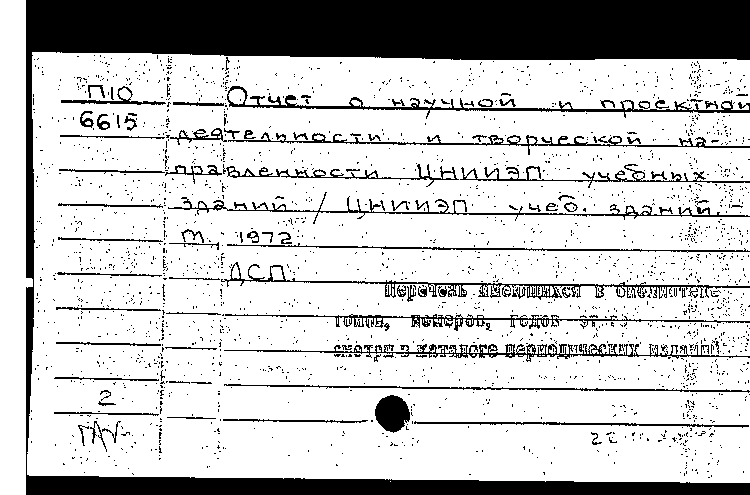 П10
6615
Отчет о научной и проектной
деятельности и творческой на-
правленности ЦНИИЭП учебных
зданий / ЦНИИЭП учеб. зданий. -
М. 1972.
ДСП.
Перечень имеющихся в библиотеке
томов, номеров, годов
смотри в каталоге периодических изданий
2